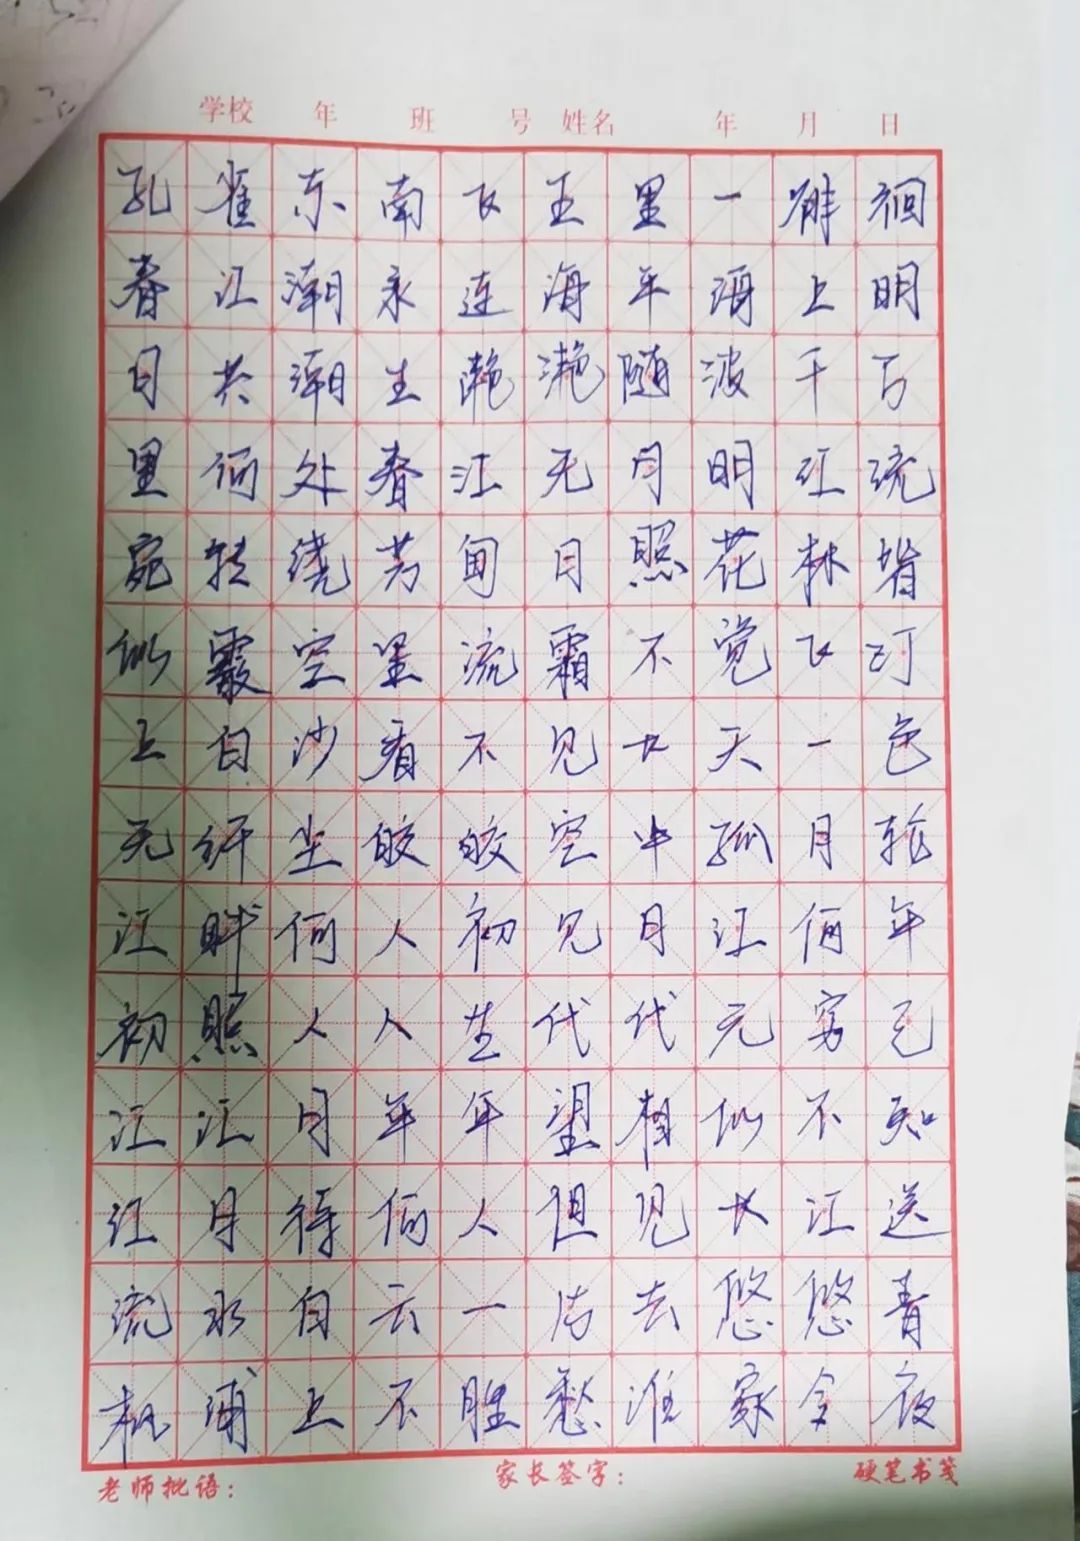 学校 年 班 号 姓名 年 月 日
孔雀东南飞五里一徘徊
春江潮水连海平海上明
月共潮生滟滟随波千万
里何处春江无月明江流
宛转绕芳甸月照花林皆
似霰空里流霜不觉飞汀
上白沙看不见江天一色
无纤尘皎皎空中孤月轮
江畔何人初见月江月何年
初照人人生代代无穷已
江江月年年望相似不知
江月待何人但见长江送
流水白云一片去悠悠青
枫浦上不胜愁谁家今夜
老师批语: 家长签字: 硬笔书笺